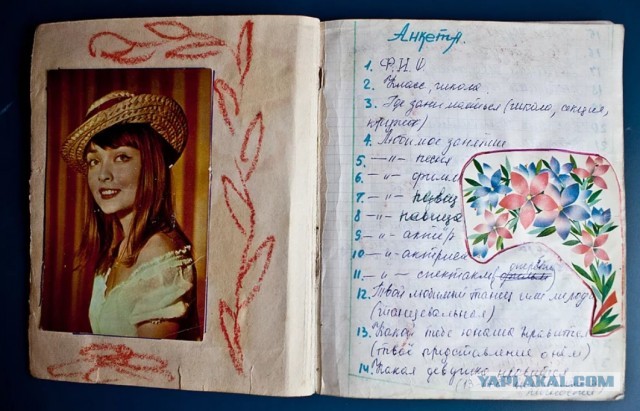 Анкета.
1. Ф.И.О
2. Класс, школа.
3. Где занимаешься (школа, секция,
кружок)
4. Любимое занятие
5. —"— песня
6. —"— фильм
7. —"— певец
8 —"— певица
9 —"— актёр
10 —"— актриса
11. —"— спектакль (оперетта
12. Твой любимый танец или мелодия
(танцевальная)
13. Какой тебе юноша нравится
(твоё представление о нём)
14. Какая девушка нравится
YAPLAKAL.COM